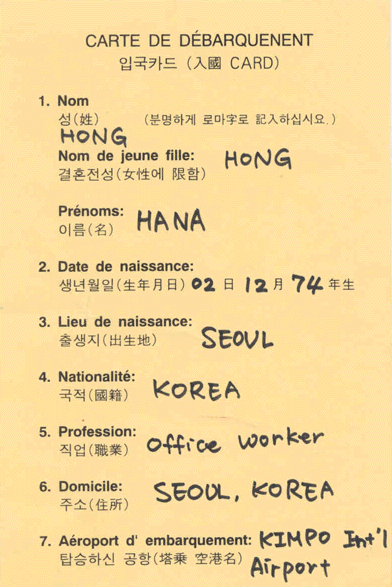 CARTE DE DÉBARQUENENT
입국카드 (入國 CARD)
1. Nom
성(姓) (분명하게 로마字로 記入하십시요.)
HONG
Nom de jeune fille: HONG
결혼전성(女性에 限함)
Prénoms: HANA
이름(名)
2. Date de naissance:
생년월일(生年月日) 02 日 12 月 74 年生
3. Lieu de naissance:
출생지(出生地) SEOUL
4. Nationalité:
국적(國籍) KOREA
5. Profession:
직업(職業) office worker
6. Domicile:
주소(住所) SEOUL, KOREA
7. Aéroport d' embarquement: KIMPO Int'l
탑승하신 공항(塔乗 空港名) Airport